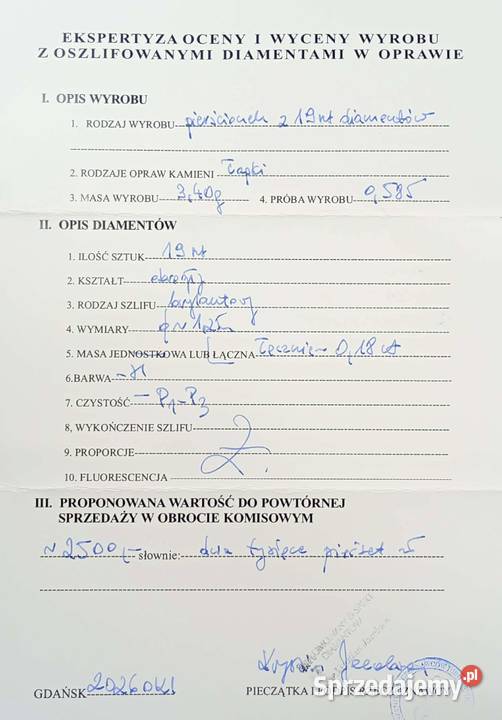 EKSPERTYZA OCENY I WYCENY WYROBU
Z OSZLIFOWANYMI DIAMENTAMI W OPRAWIE
I. OPIS WYROBU
1. RODZAJ WYROBU pierścionek z 19 szt diamentów
2. RODZAJE OPRAW KAMIENI łapki
3. MASA WYROBU 3,40g 4. PRÓBA WYROBU 0,585
II. OPIS DIAMENTÓW
1. ILOŚĆ SZTUK 19 szt
2. KSZTAŁT okrągły
3. RODZAJ SZLIFU brylantowy
4. WYMIARY
5. MASA JEDNOSTKOWA LUB ŁĄCZNA Łącznie ~ 0,18 ct
6. BARWA - H
7. CZYSTOŚĆ - P1-P3
8, WYKOŃCZENIE SZLIFU
9. PROPORCJE
10. FLUORESCENCJA
III. PROPONOWANA WARTOŚĆ DO POWTÓRNEJ
SPRZEDAŻY W OBROCIE KOMISOWYM
~ 2500,- słownie: dwa tysiące pięćset zł
GDAŃSK
PIECZĄTKA I PODPIS RZECZOZNAWCY
Sprzedajemy.pl